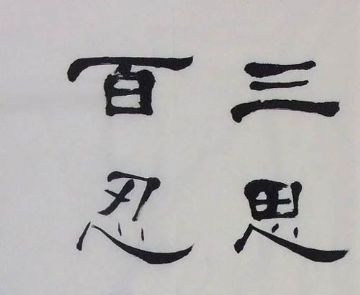 三思
百忍